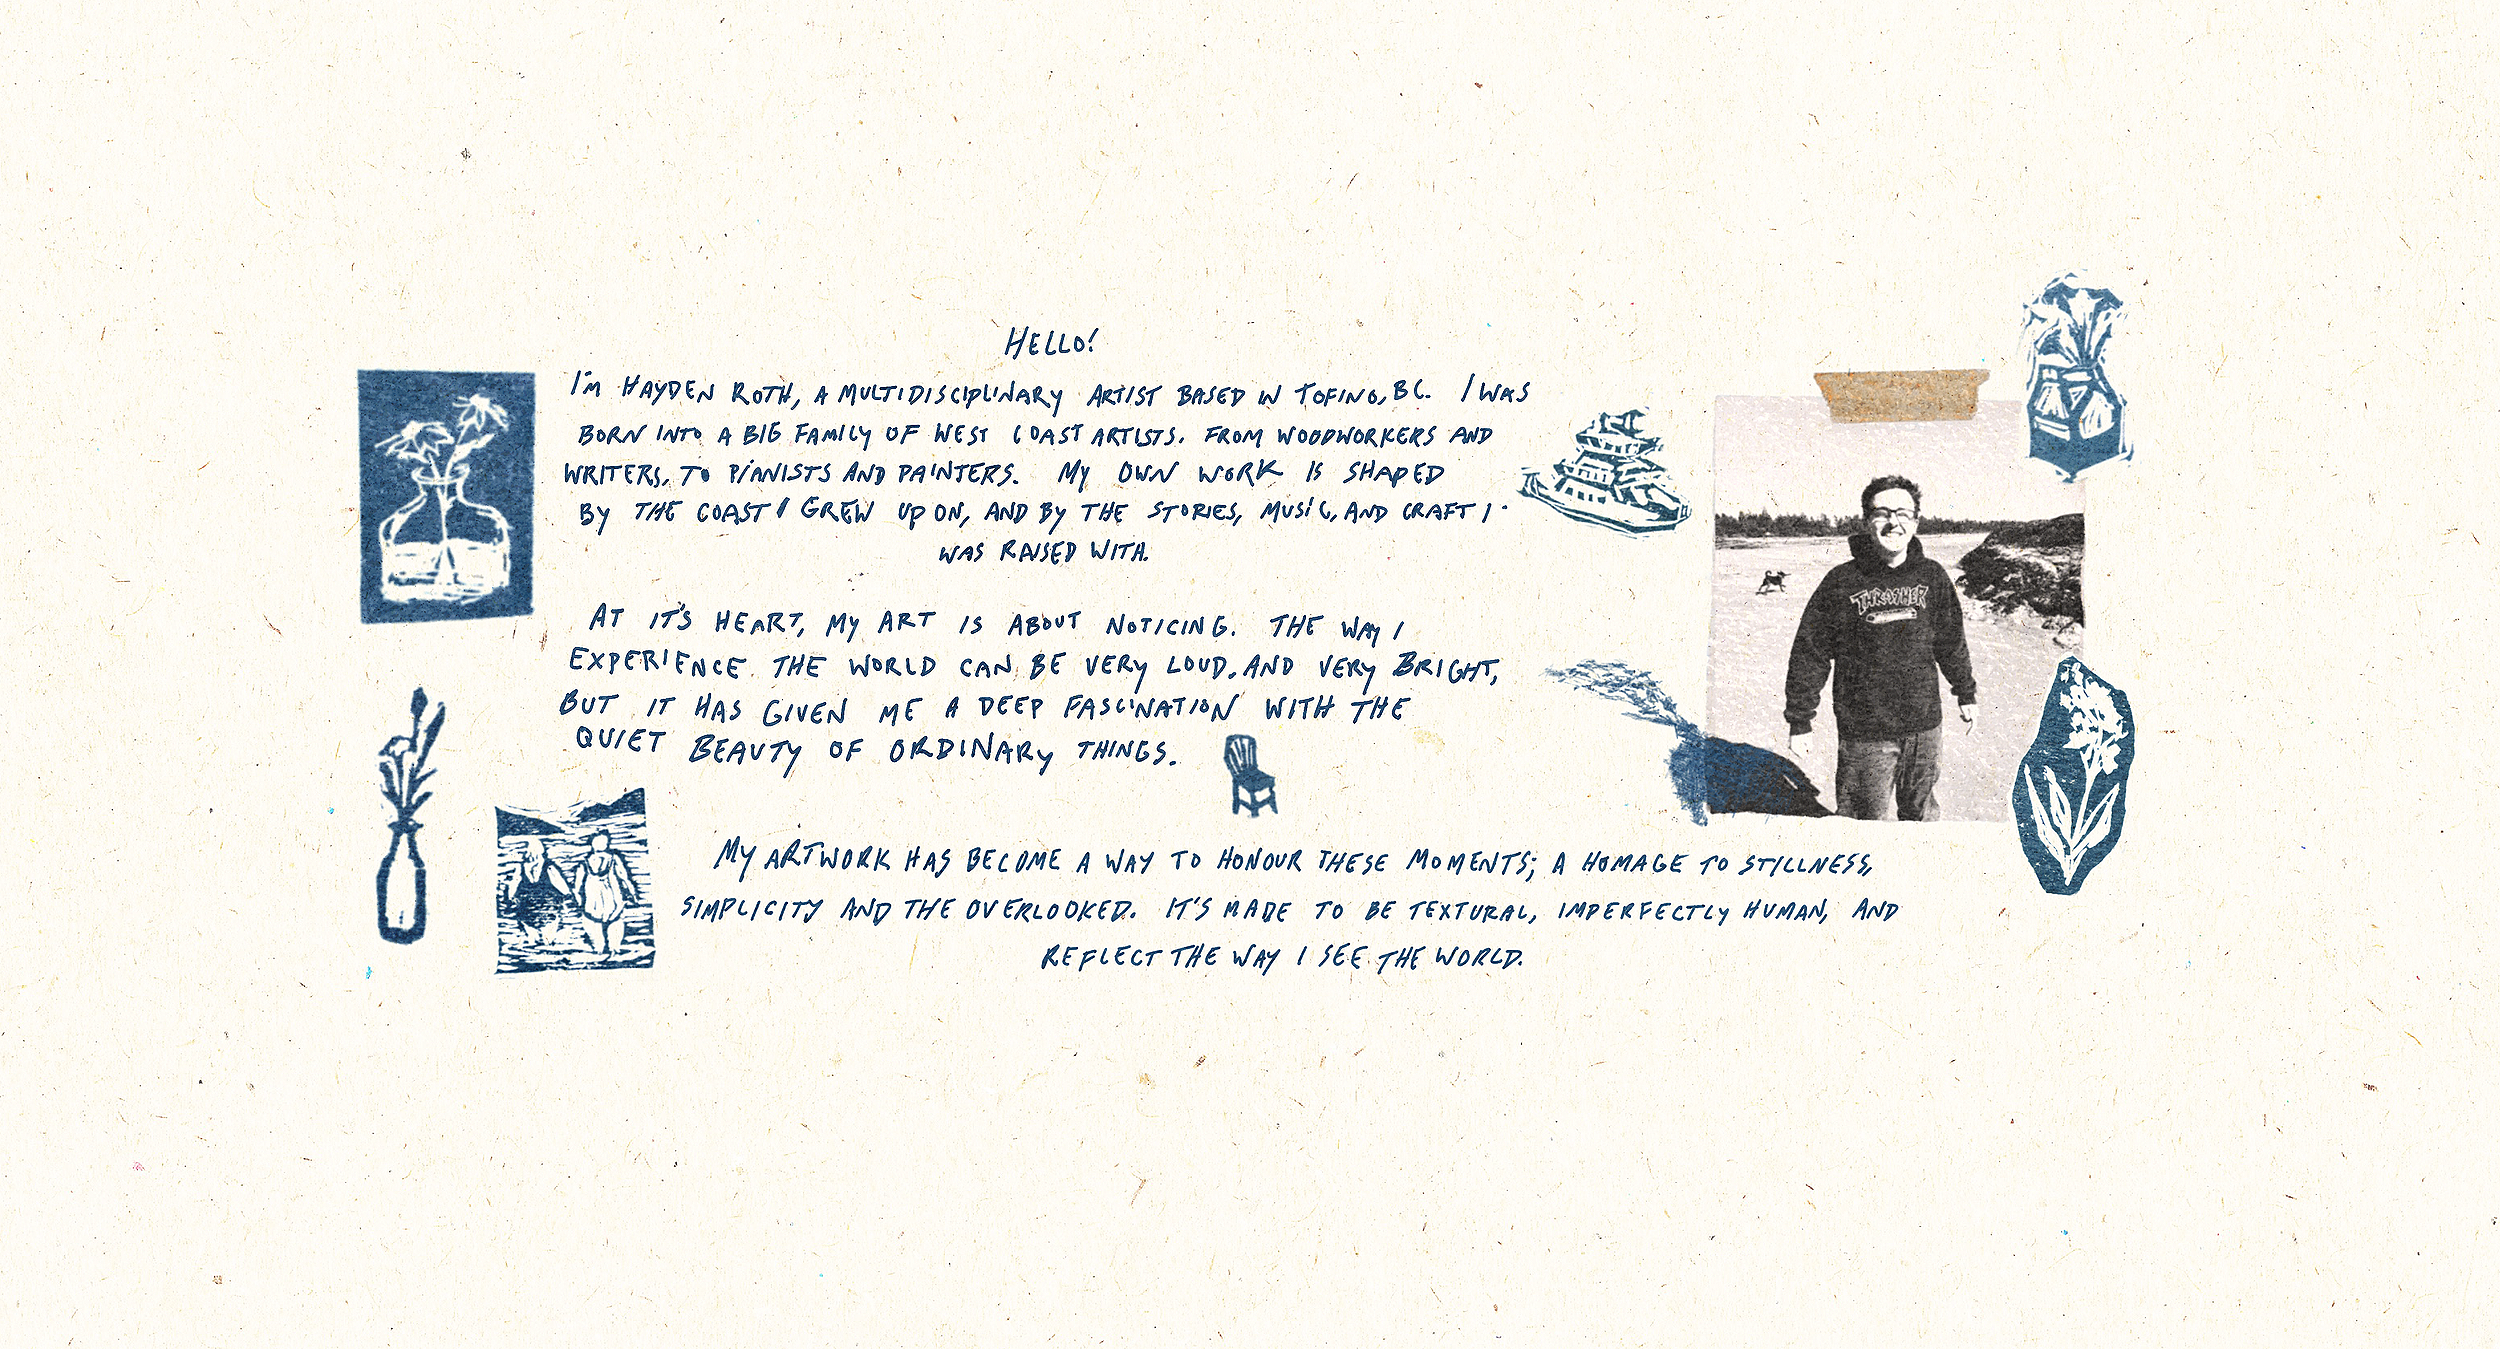 HELLO!
I'M HAYDEN ROTH, A MULTIDISCIPLINARY ARTIST BASED IN TOFINO, BC. I WAS
BORN INTO A BIG FAMILY OF WEST COAST ARTISTS. FROM WOODWORKERS AND
WRITERS, TO PIANISTS AND PAINTERS. MY OWN WORK IS SHAPED
BY THE COAST I GREW UP ON, AND BY THE STORIES, MUSIC, AND CRAFT I
WAS RAISED WITH.
THRASHER
AT IT'S HEART, MY ART IS ABOUT NOTICING. THE WAY I
EXPERIENCE THE WORLD CAN BE VERY LOUD, AND VERY BRIGHT,
BUT IT HAS GIVEN ME A DEEP FASCINATION WITH THE
QUIET BEAUTY OF ORDINARY THINGS.
MY ARTWORK HAS BECOME A WAY TO HONOUR THESE MOMENTS; A HOMAGE TO STILLNESS,
SIMPLICITY AND THE OVERLOOKED. IT'S MADE TO BE TEXTURAL, IMPERFECTLY HUMAN, AND
REFLECT THE WAY I SEE THE WORLD.